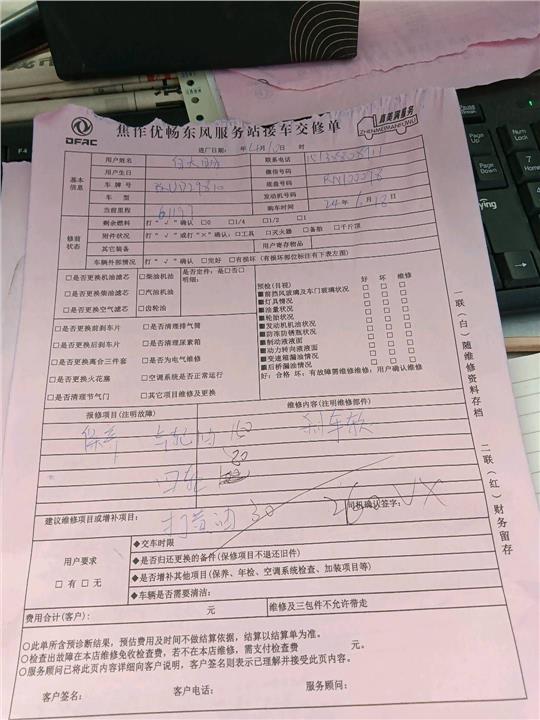 DFAC
焦作优畅东风服务站接车交修单
真美满服务
ZHENMEIMANFUWU
进厂日期: 年 4月10日 时
基本信息
用户姓名
联系电话
用户生日
微信号码
车 牌 号
底盘号码
车 型
发动机号码
当前里程
购车时间 24 年 6 月 18 日
修前状态
剩余燃料 打“√”确认 □0 □1/4 □1/2 □1
附件状况 打“√”或打“×”确认: □工具 □灭火器 □备胎 □千斤顶
其它装备 用户寄存物品
车辆外部情况 打“√”确认 □完好 □有损坏(有损坏部位标注有下表左面)
□是否更换机油滤芯 □柴油机油
□是否更换柴油滤芯 □汽油机油
□是否更换空气滤芯 □齿轮油
是否定件: 是□否□
明细:
□是否更换前刹车片 □是否清理排气筒
□是否更换后刹车片 □是否清理尿素箱
□是否更换离合三件套 □是否为电气维修
□是否更换火花塞 □空调系统是否正常运行
□是否清理节气门 □其它项目维修及更换
预检(目视) 好 坏 维修
■前挡风玻璃及车门玻璃状况 □ □ □
■灯具情况 □ □ □
■油量状况 □ □ □
■轮胎状况 □ □ □
■发动机机油状况 □ □ □
■防冻防锈瓶状况 □ □ □
■制动液液面 □ □ □
■动力转向液液面 □ □ □
■变速箱漏油情况 □ □ □
■后桥漏油情况 □ □ □
好: 合格 坏: 有故障需维修维修: 用户确认维修
报修项目(注明故障) 维修内容(注明维修部件)
保养 150 刹车软
80
四轮
建议维修项目或增补项目: 打黄油 30
司机确认签字:
260 VX
用户要求
□ 有 □ 无
◆交车时限
◆是否归还更换的备件(保修项目不退还旧件)
◆是否增补其他项目(保养、年检、空调系统检查、加装项目等)
◆车辆是否需要清洁:
费用合计(客户): 元 维修及三包件不允许带走
○此单所含预诊断结果, 预估费用及时间不做结算依据, 结算以结算单为准。
○检查出故障在本店维修免收检查费, 若不在本店维修, 需支付检查费 元。
○服务顾问已将此页内容详细向客户说明, 客户签名则表示已理解并接受此页内容。
客户签名: 客户电话: 服务顾问:
一联(白)随维修资料存档
二联(红)财务留存